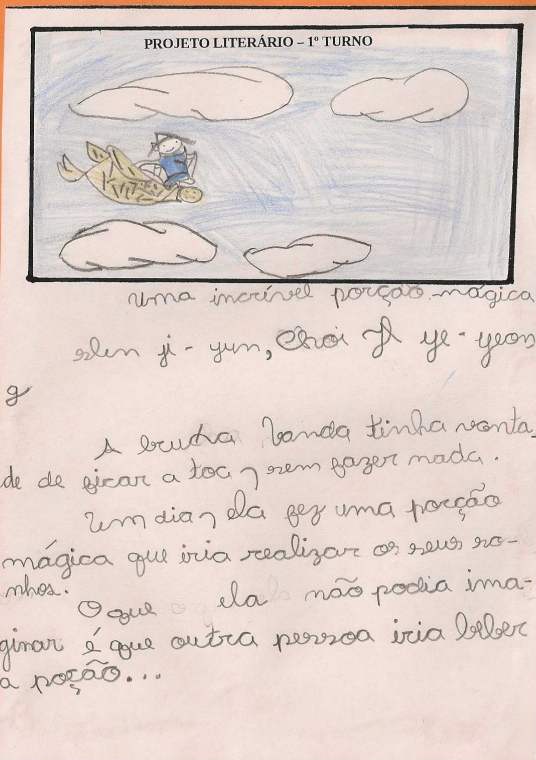 PROJETO LITERÁRIO – 1º TURNO
Uma incrível porção mágica
ji-yun, Choi A ye-yeon
g
A bruxa Vanda tinha vonta-
de de ficar a toa, sem fazer nada.
Um dia, ela fez uma porção
mágica que iria realizar os seus so-
nhos.
O que ela não podia ima-
ginar é que outra pessoa iria beber
a poção...